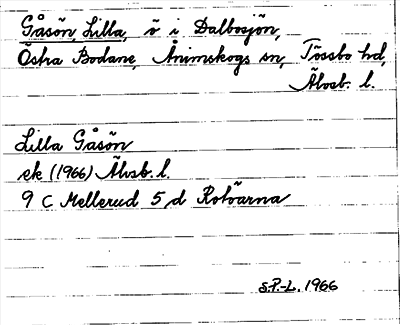 Gåsön, Lilla, ö i Dalbosjön,
Östra Bodane, Ånimskogs sn, Tössbo hd,
Älvsb. l.
Lilla Gåsön
ek (1966) Älvsb. l.
9 C Mellerud 5 d Rotöarna
S.P.-L. 1966